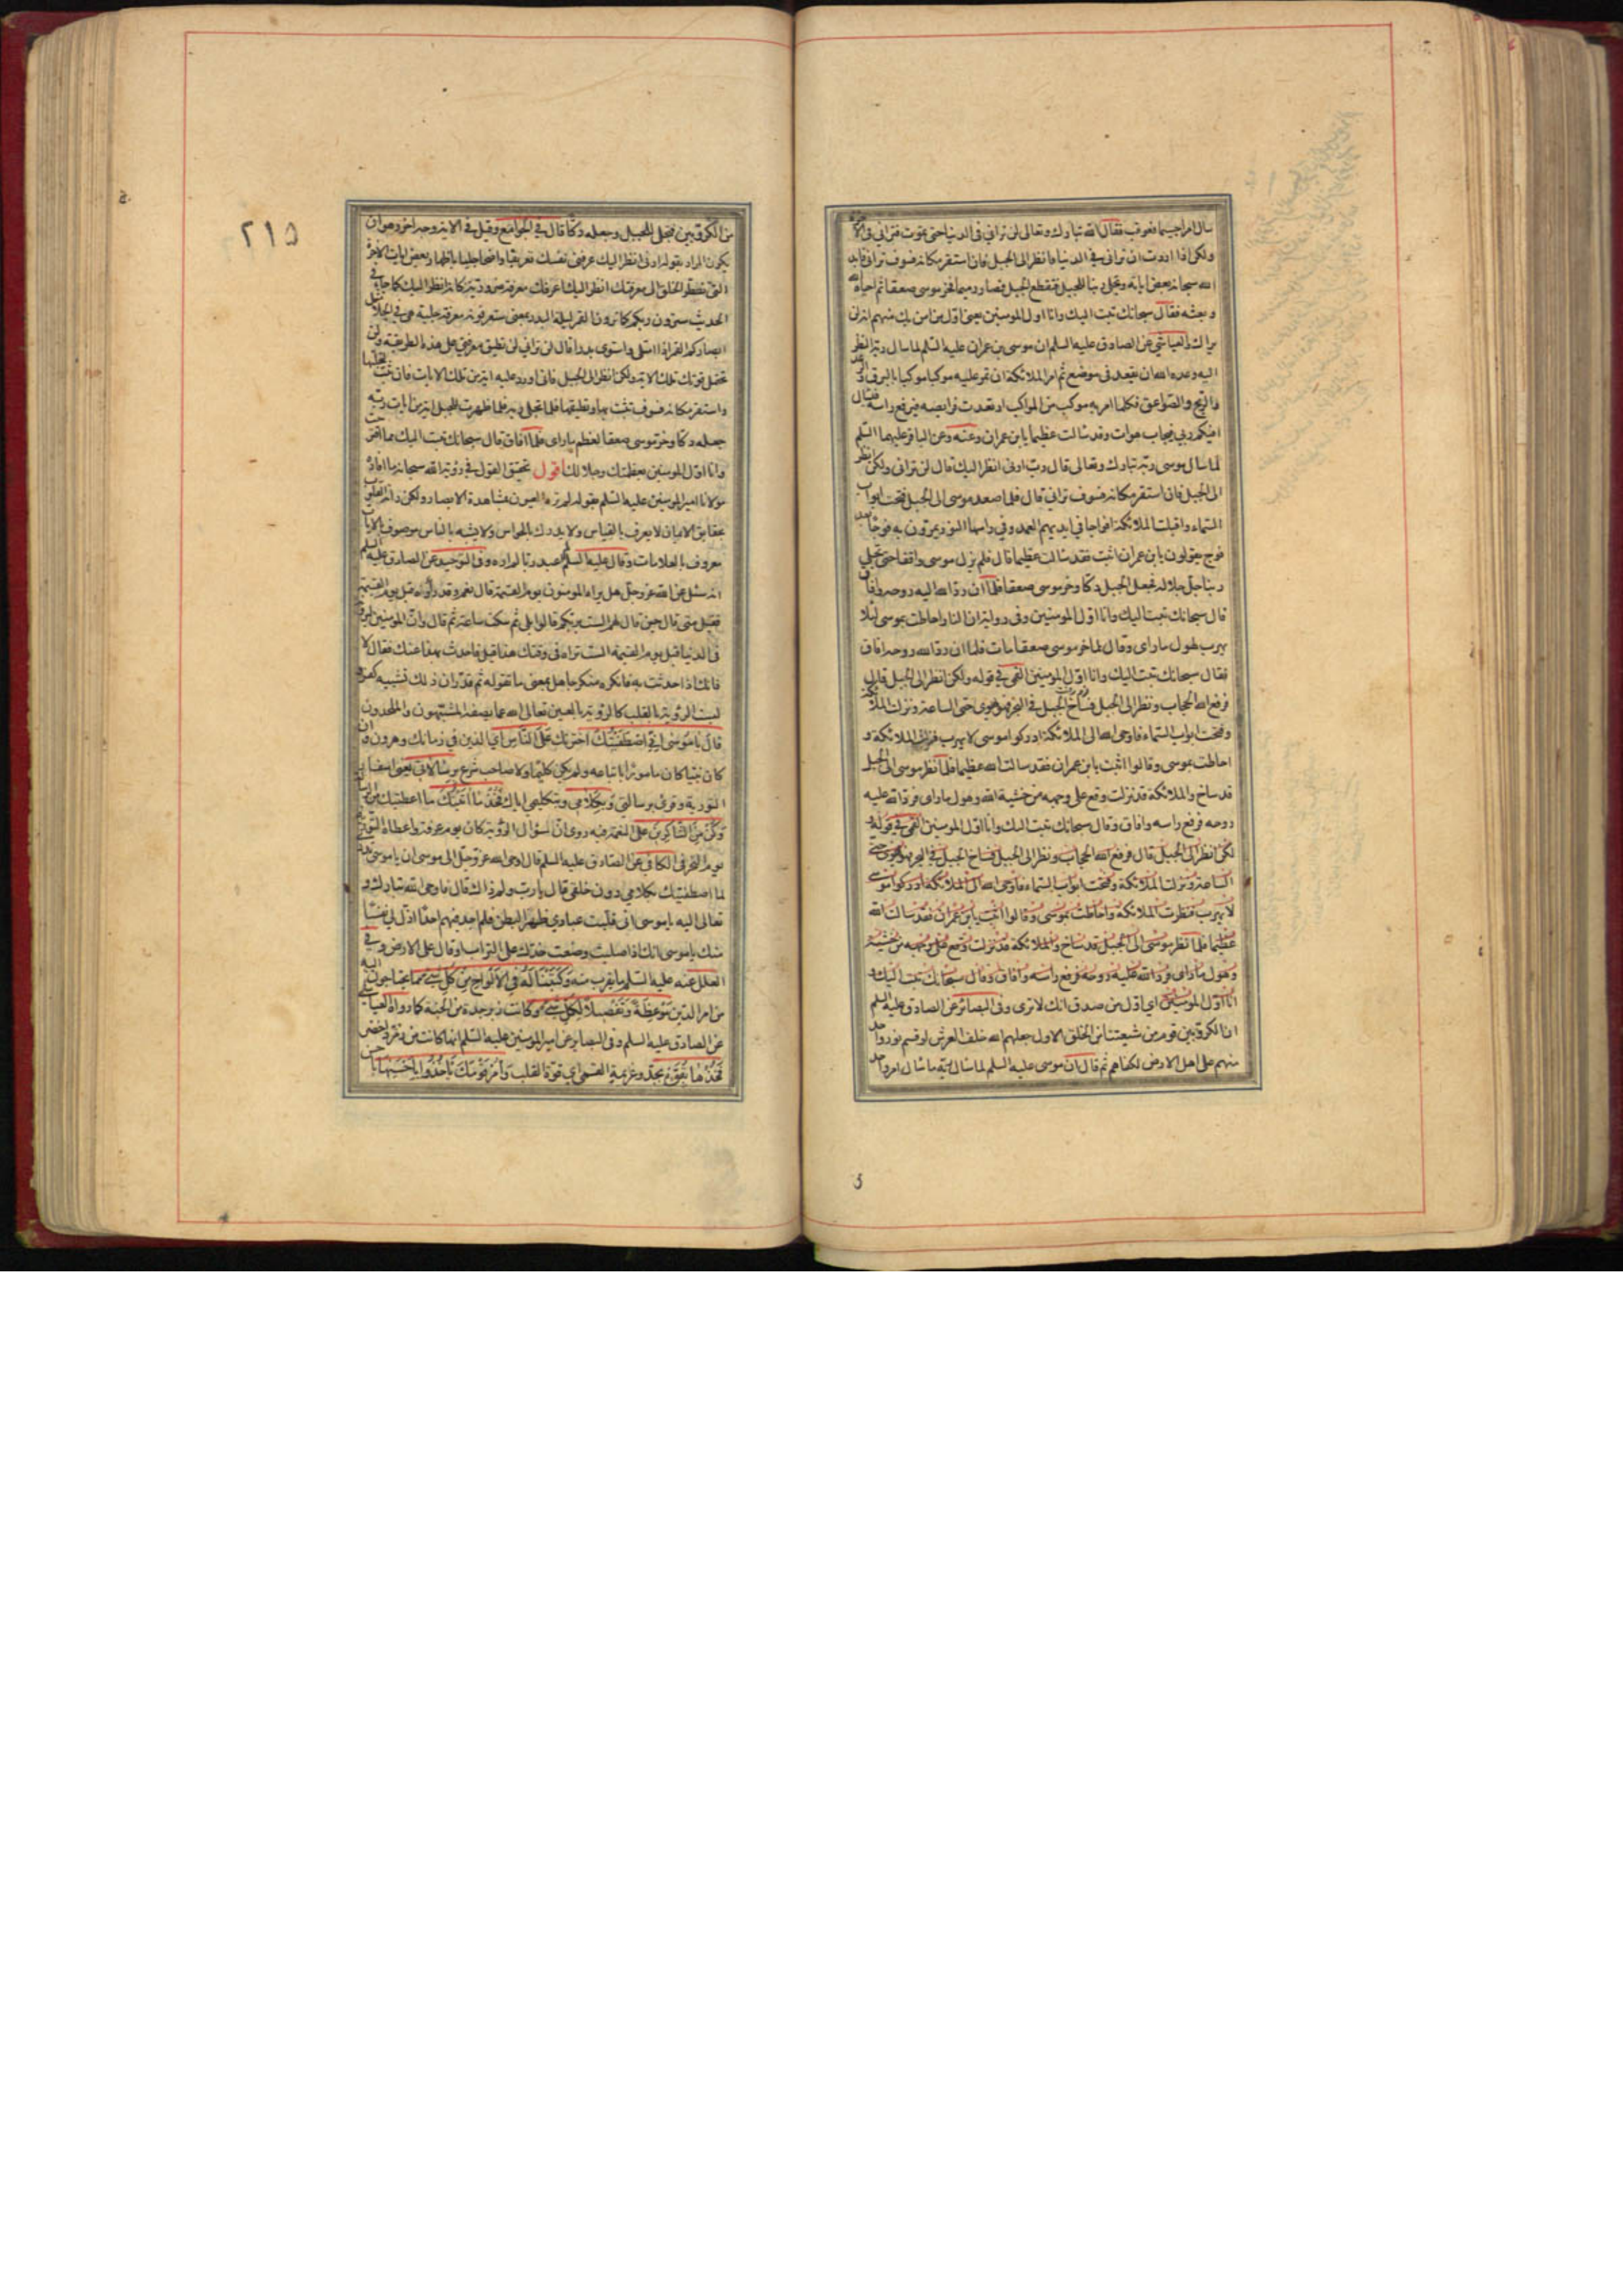 سال امراجسيما فعوقب فقال الله تبارك وتعالى لن تراني في الدنيا حتى تموت فتراني في الآخرة
ولكن اذا اردت ان تراني في الدنيا فانظر الى الجبل فان استقر مكانه فسوف تراني فابدى
الله سبحانه بعض اياته وتجلى ربنا للجبل فتقطع الجبل فصار رميما وخر موسى صعقا ثم احياه الله
وبعثه فقال سبحانك تبت اليك وانا اول المومنين يعنى اول من امن بك منهم انه لن
يراك والعياشي عن الصادق عليه السلم ان موسى بن عمران عليه السلم لما سال ربه النظر
اليه وعده الله ان يقعد في موضع ثم امر الملائكة ان تمر عليه موكبا موكبا بالبرق والرعد
والريح والصواعق فكلما امر به موكب من المواكب ارتعدت فرائصه فيرفع راسه فيسال
افيكم ربي فيجاب هوات وقد سالت عظيما يابن عمران وعنه وعن الباقر عليهما السلم
لما سال موسى ربه تبارك وتعالى قال رب ارنى انظر اليك قال لن ترانى ولكن انظر
الى الجبل فان استقر مكانه فسوف تراني قال فلما صعد موسى الى الجبل فتحت ابواب
السماء واقبلت الملائكة افواجا في ايديهم العمد وفي راسها النور يمرون به فوجا بعد
فوج يقولون يابن عمران اثبت فقد سالت عظيما قال فلم يزل موسى واقفا حتى تجلى
ربنا جل جلاله فجعل الجبل دكا وخر موسى صعقا فلما ان رد الله اليه روحه وافاق
قال سبحانك تبت اليك وانا اول المومنين وفي رواية ان النار احاطت بموسى لئلا
يهرب لهول ما راى وقال لما خر موسى صعقا مات فلما ان رد الله روحه افاق
فقال سبحانك تبت اليك وانا اول المومنين القمي في قوله ولكن انظر الى الجبل قال
فرفع الله الحجاب ونظر الى الجبل فساخ الجبل في البحر فهو يهوى حتى الساعة ونزلت الملائكة
وفتحت ابواب السماء فاوحى الله الى الملائكة ادركوا موسى لا يهرب فنزلت الملائكة و
احاطت بموسى وقالوا اثبت يابن عمران فقد سالت الله عظيما فلما نظر موسى الى الجبل
قد ساخ والملائكة قد نزلت وقع على وجهه من خشية الله وهول ما راى فرد الله عليه
روحه فرفع راسه وافاق وقال سبحانك تبت اليك وانا اول المومنين القمي في قوله و
لكن انظر الى الجبل قال فرفع الله الحجاب ونظر الى الجبل فساخ الجبل في البحر فهو يهوى حتى
الساعة ونزلت الملائكة وفتحت ابواب السماء فاوحى الله الى الملائكة ادركوا موسى
لا يهرب فنظرت الملائكة واحاطت بموسى وقالوا اثبت يابن عمران فقد سالت الله
عظيما فلما نظر موسى الى الجبل قد ساخ والملائكة قد نزلت وقع على وجهه من خشية
وهول ما راى فرد الله عليه روحه فرفع راسه وافاق وقال سبحانك تبت اليك و
انا اول المومنين اى اول من صدق انك لا ترى وفي البصائر عن الصادق عليه السلم
ان الكروبين قوم من شيعتنا من الخلق الاول جعلهم الله خلف العرش لو قسم نور واحد
منهم على اهل الارض لكفاهم ثم قال ان موسى عليه السلم لما سال ربه ما سال امر واحدا
٢١٥
من الكروبين فتجلى للجبل وجعله دكا قال في الجوامع وقيل في الاية وجه اخر وهو ان
يكون المراد بقوله ارنى انظر اليك عرفنى نفسك تعريفا واضحا جليا باظهار بعض ايات الاخرة
التي تضطر الخلق الى معرفتك انظر اليك اعرفك معرفة ضرورية كانى انظر اليك كما جاء في
الحديث سترون ربكم كما ترون القمر ليلة البدر بمعنى ستعرفونه معرفة جلية هي في الجلاء مثل
ابصاركم القمر اذا امتلى واستوى بدرا قال لن تراني لن تطيق معرفتي على هذه الطريقة ولن
تحتمل قوتك تلك الاية ولكن انظر الى الجبل فانى اورد عليه اية من تلك الايات فان ثبت لتجليها
واستقر مكانه فسوف تثبت بها وتطيقها فلما تجلى ربه فلما ظهرت للجبل اية من ايات ربه
جعله دكا وخر موسى صعقا لعظم ما راى فلما افاق قال سبحانك تبت اليك مما اقترحت
وانا اول المومنين بعظمتك وجلالك اقول تحقيق القول في رؤية الله سبحانه ما افاده
مولانا امير المومنين عليه السلم بقوله لم تره العيون بمشاهدة الابصار ولكن راته القلوب
بحقايق الايمان لا يعرف بالقياس ولا يدرك بالحواس ولا يشبه بالناس موصوف بالايات
معروف بالعلامات وقال عليه السلم لم اعبد ربا لم اره وفي التوحيد عن الصادق عليه السلم
انه سئل عن الله عز وجل هل يراه المومنون يوم القيمة قال نعم وقد راوه قبل يوم القيمة
فقيل متى قال حين قال لهم الست بربكم قالوا بلى ثم سكت ساعة ثم قال وان المومنين ليرونه
في الدنيا قبل يوم القيمة الست تراه في وقتك هذا قيل فاحدث بهذا عنك فقال لا
فانك اذا حدثت به فانكره منكر جاهل بمعنى ما تقوله ثم قدر ان ذلك تشبيه كفر و
ليست الرؤية بالقلب كالرؤية بالعين تعالى الله عما يصفه المشبهون والملحدون
قال يا موسى اني اصطفيتك اخترتك على الناس اى الذين في زمانك وهرون وان
كان نبيا كان مامورا باتباعه ولم يكن كليما ولا صاحب شرع برسالاتى يعنى اسفار
التورية وقرئ برسالتى وبكلامي وبتكليمي اياك فخذ ما آتيتك ما اعطيتك من الرسالة
وكن من الشاكرين على النعمة فيه روى ان سؤال الرؤية كان يوم عرفة واعطاه التورية
يوم النحر في الكافي عن الصادق عليه السلم قال اوحى الله عز وجل الى موسى ان يا موسى اتدرى
لما اصطفيتك بكلامي دون خلقى قال يا رب ولم ذاك قال فاوحى الله تبارك و
تعالى اليه يا موسى انى قلبت عبادي ظهرا لبطن فلم اجد فيهم احدا اذل لى نفسا
منك يا موسى انك اذا صليت وضعت خدك على التراب او قال على الارض وفي
العلل عنه عليه السلم ما يقرب منه وكتبنا له في الالواح من كل شئ مما يحتاجون اليه
من امر الدين موعظة وتفصيلا لكل شئ وكانت زبرجدة من الجنة كما رواه العياشي
عن الصادق عليه السلم وفي البصاير عن امير المومنين عليه السلم انها كانت من زمرد اخضر
فخذها بقوة بجد وعزيمة القمى اى قوة القلب وأمر قومك ياخذوا باحسنها باحسن